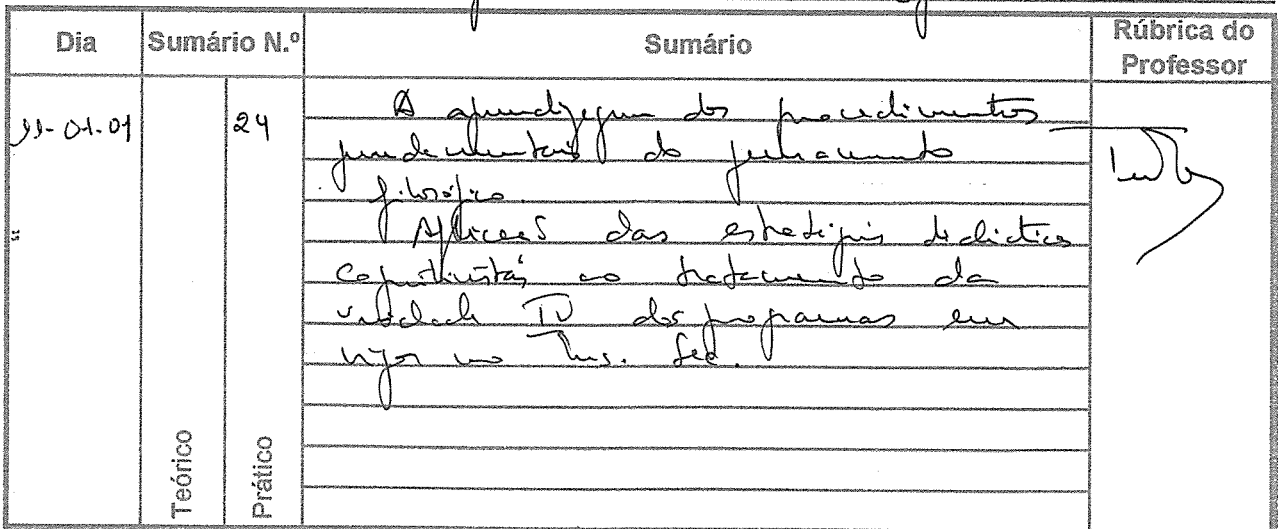 Dia Sumário N.º Sumário Rúbrica do Professor
11-01-01 24 A aprendizagem dos procedimentos
fundamentais do pensamento
filosófico.
Aplicação das estratégias didácticas
cognitivistas ao tratamento da
unidade IV dos programas em
vigor no Ens. Sec.
Teórico Prático